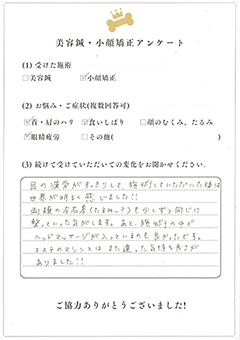 美容鍼・小顔矯正アンケート
(1) 受けた施術
□美容鍼 ☑小顔矯正
(2) お悩み・ご症状(複数回答可)
☑首・肩のハリ ☑食いしばり □顔のむくみ、たるみ
☑眼精疲労 □その他( )
(3) 続けて受けていただいての変化をお聞かせください。
目の疲労がすっきりして、施術していただいた後は
世界が明るく感じました!!
両頬の左右差(たるみ…?)も少しずつ同じに
整っていった気がします。あと、施術の中で
ヘッドマッサージが入っているのも良かったです。
エステのマシンとはまた違った気持ち良さが
ありました!!
ご協力ありがとうございました!